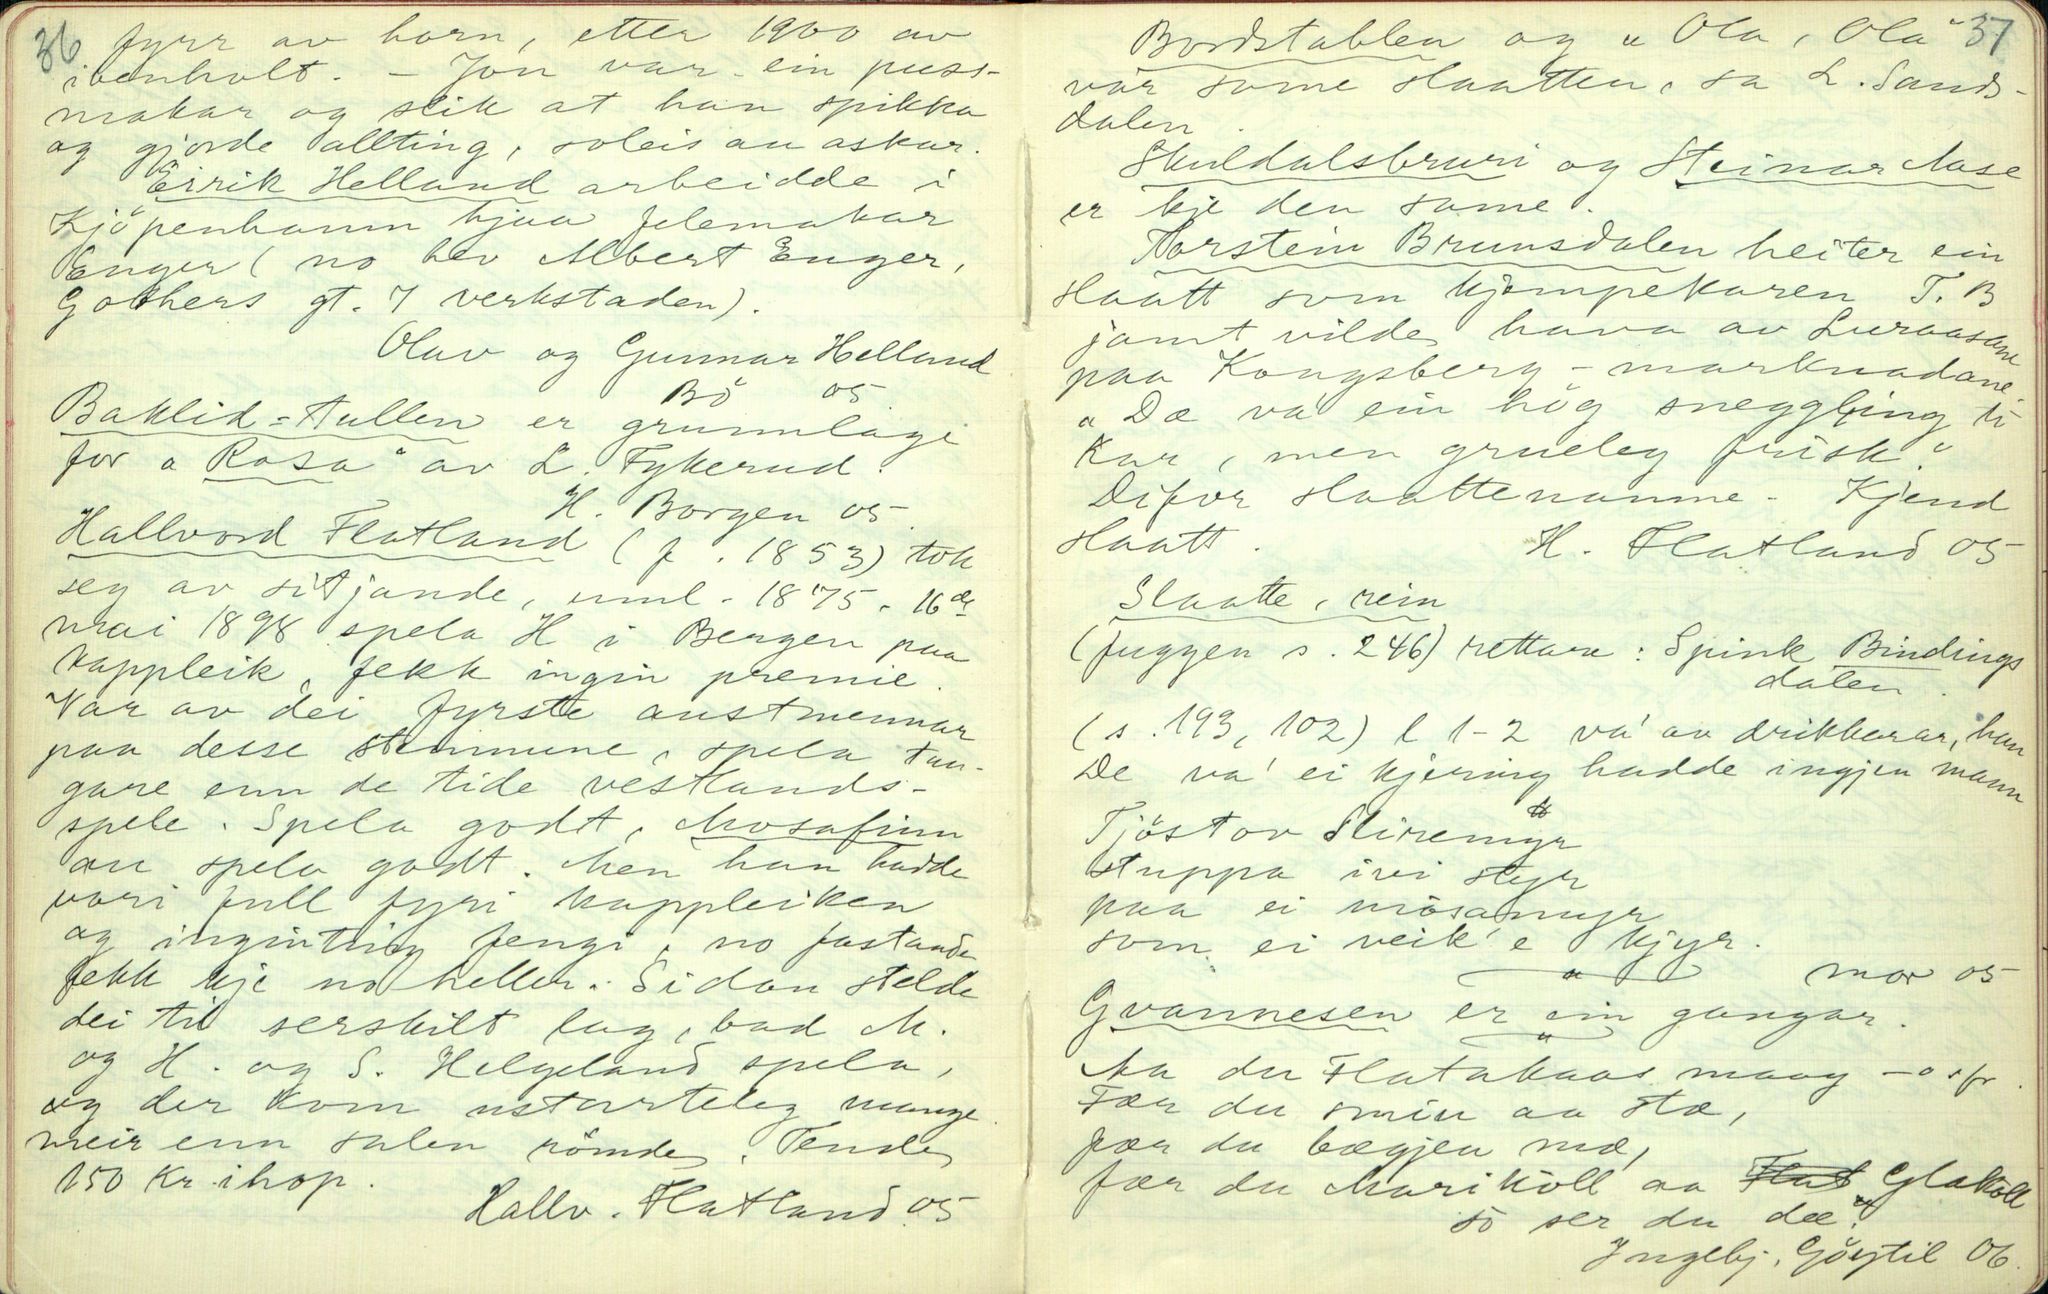 36
fyrr av horn, etter 1900 av
ibenholt. – Jon var ein puss-
makar og slik at han spikka
og gjorde allting, soleis au askar.
Eirik Helland arbeidde i
Kjöpenhamn hjaa felemakar
Enger (no hev Albert Enger,
Gothers gt. 7 verkstaden).
Olav og Gunnar Helland
Bö 05
Baklid-Hullen er grunnlage
for "Rosa" av L. Fykerud.
H. Borgen 05.
Hallvord Flatland (f. 1853) tok
seg av sitjande, uml. 1875. 16de
mai 1898 spela H i Bergen paa
kappleik, fekk ingin premie.
Var av dei fyrste austmennar
paa desse stemnune, spela tun-
gare enn de tide vestlands-
spele. Spela godt, Mosafinn
au spela godt. Men han hadde
vori full fyri kappleiken
og inginting fengi, no fastande
fekk kje no heller. Sidan stelde
dei til serskilt lag, bad M.
og H. og S. Helgeland spela,
og der kom ustyrteleg mange
meir enn salen römde. Tende
150 kr ihop.
Hallv. Flatland 05
37
Bordstabben og "Ola, Ola"
var same slaatten, sa L. Sands-
dalen.
Skuldalsbruri og Steinar Aase
er kje den same.
Torstein Brunsdalen heiter ein
slaatt som kjempekaren T. B
jamt vilde hava av Luraasane
paa Kongsberg-marknadane.
"Dæ va' ein hög sneggling ti
kar, men grueleg frisk."
Difor slaattenamne. Kjend
slaatt. H. Flatland 05
Slaatte, reim
(fuggen s. 246) rettare: Spink Bindings
dalen.
(s. 193, 102) l 1-2 va' av drikkarar, han
De va' ei kjering hadde ingjen mann
Tjöstov Sliremyr
stuppa ivi styr
paa ei mösamyr
som ei veik'e kjyr.
mor 05
Gvannesen er ein gangar.
Aa du Flatakaas maag – osfr.
Fær du smin aa stæ,
fær du bægjen mæ,
fær du Marikoll aa Flat Glakoll
so ser du dæ."
Ingebj. Göytil 06.